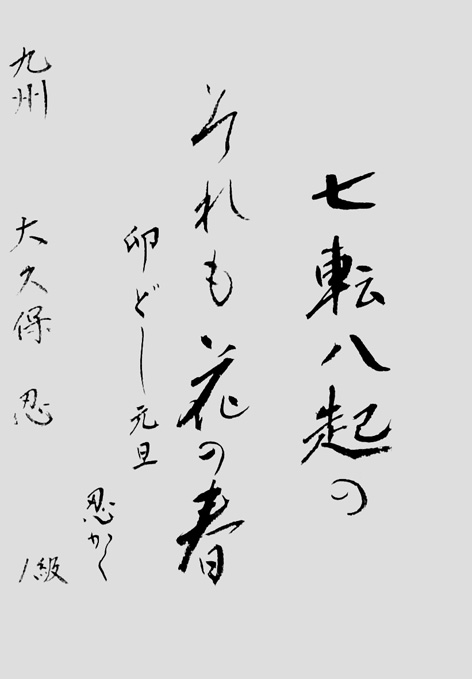 七転八起の
それも花の春
卯どし元旦
忍かく
九州 大久保 忍 1級